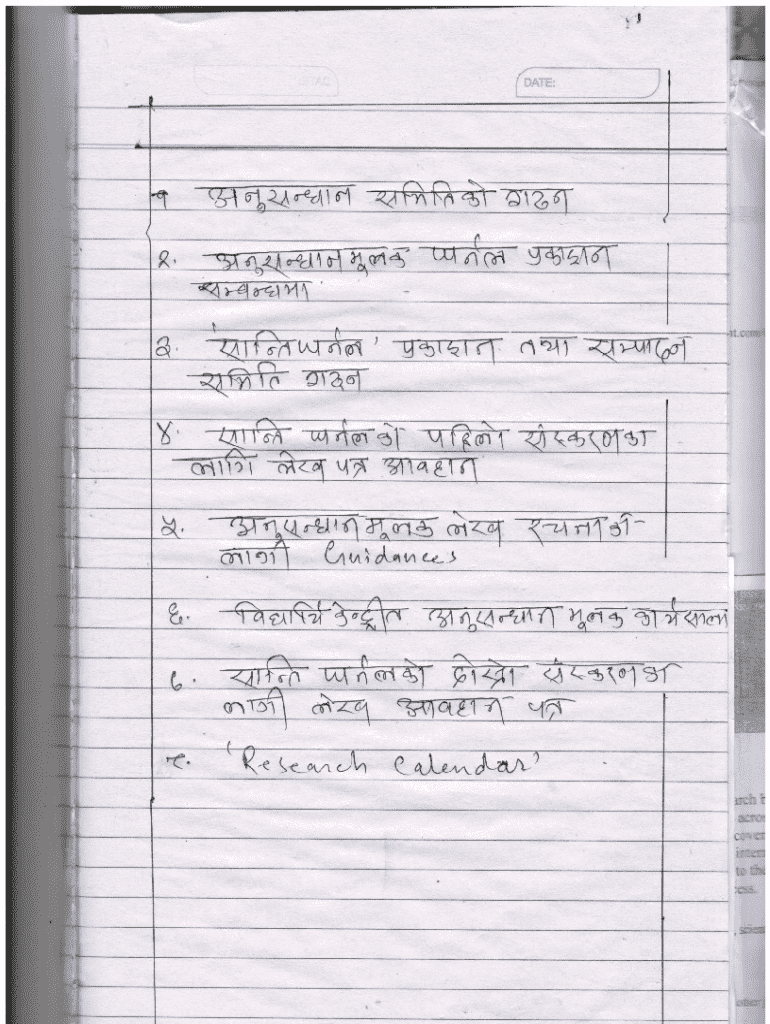 DATE:
१ अनुसन्धान समितिको गठन
२. अनुसन्धानमूलक जर्नल प्रकाशन
सम्बन्धमा
३. 'सान्ति जर्नल' प्रकाशन तथा सम्पादन
समिति गठन
४. सान्ति जर्नलको पहिलो संस्करणका
लागि लेख पत्र आवहान
५. अनुसन्धानमूलक लेख रचनाका
लागी Guidances
६. विद्यार्थि केन्द्रीत अनुसन्धान मूलक कार्यसाला
७. सान्ति जर्नलको दोस्रो संस्करणका
लागी लेख आवहान पत्र
८. 'Research Calendar'
nt.com/
arch b
acros
cover
intern
to the
cess.
scien